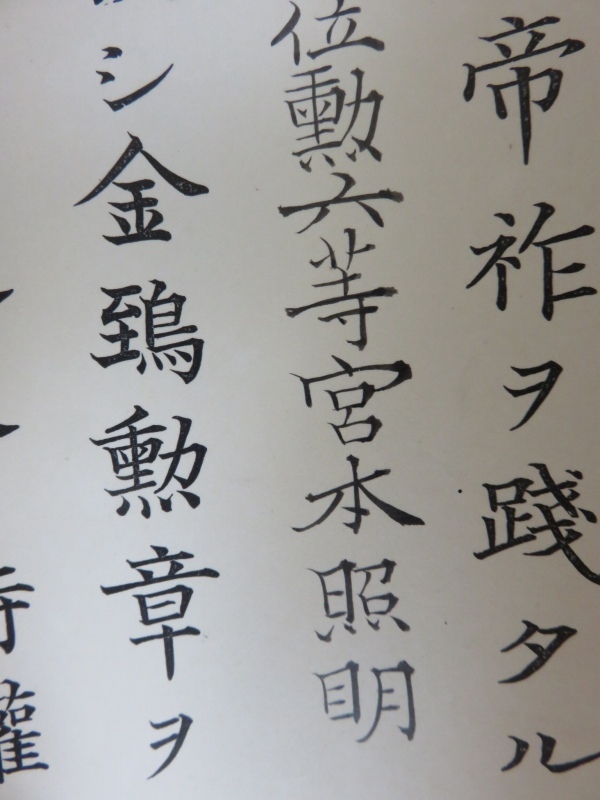 帝祚ヲ踐タル
位勲六等宮本照明
シ金鵄勲章ヲ